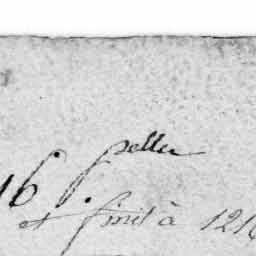 16 pellu
et finit à 1216